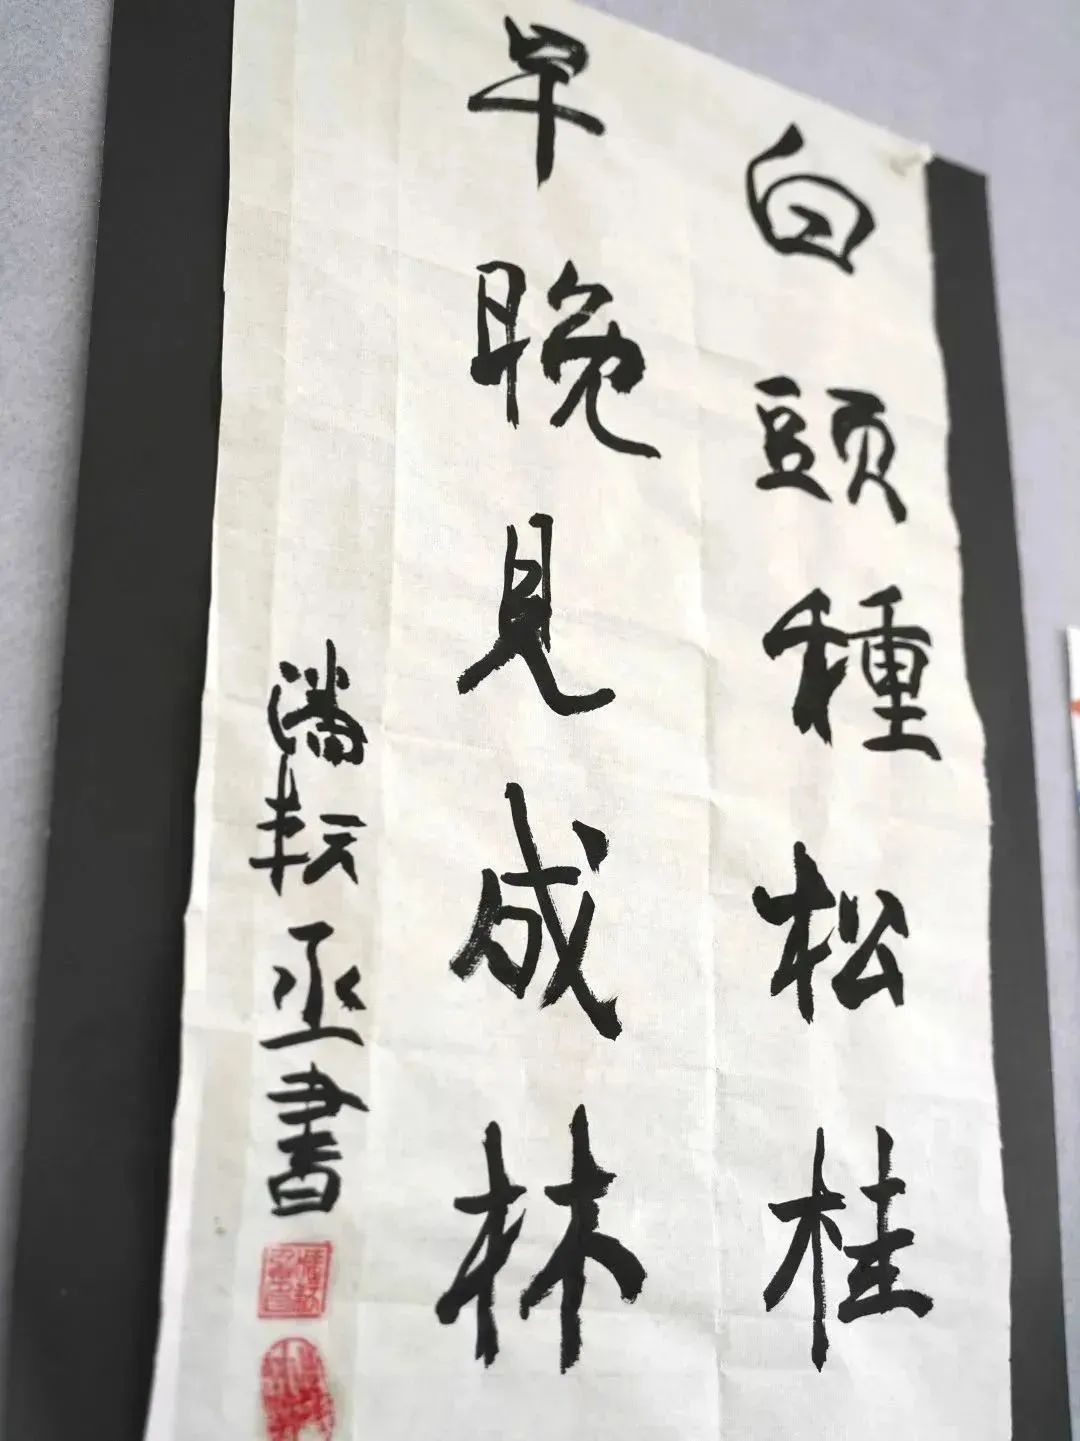 白頭種松桂
早晚見成林
潘耘丞書